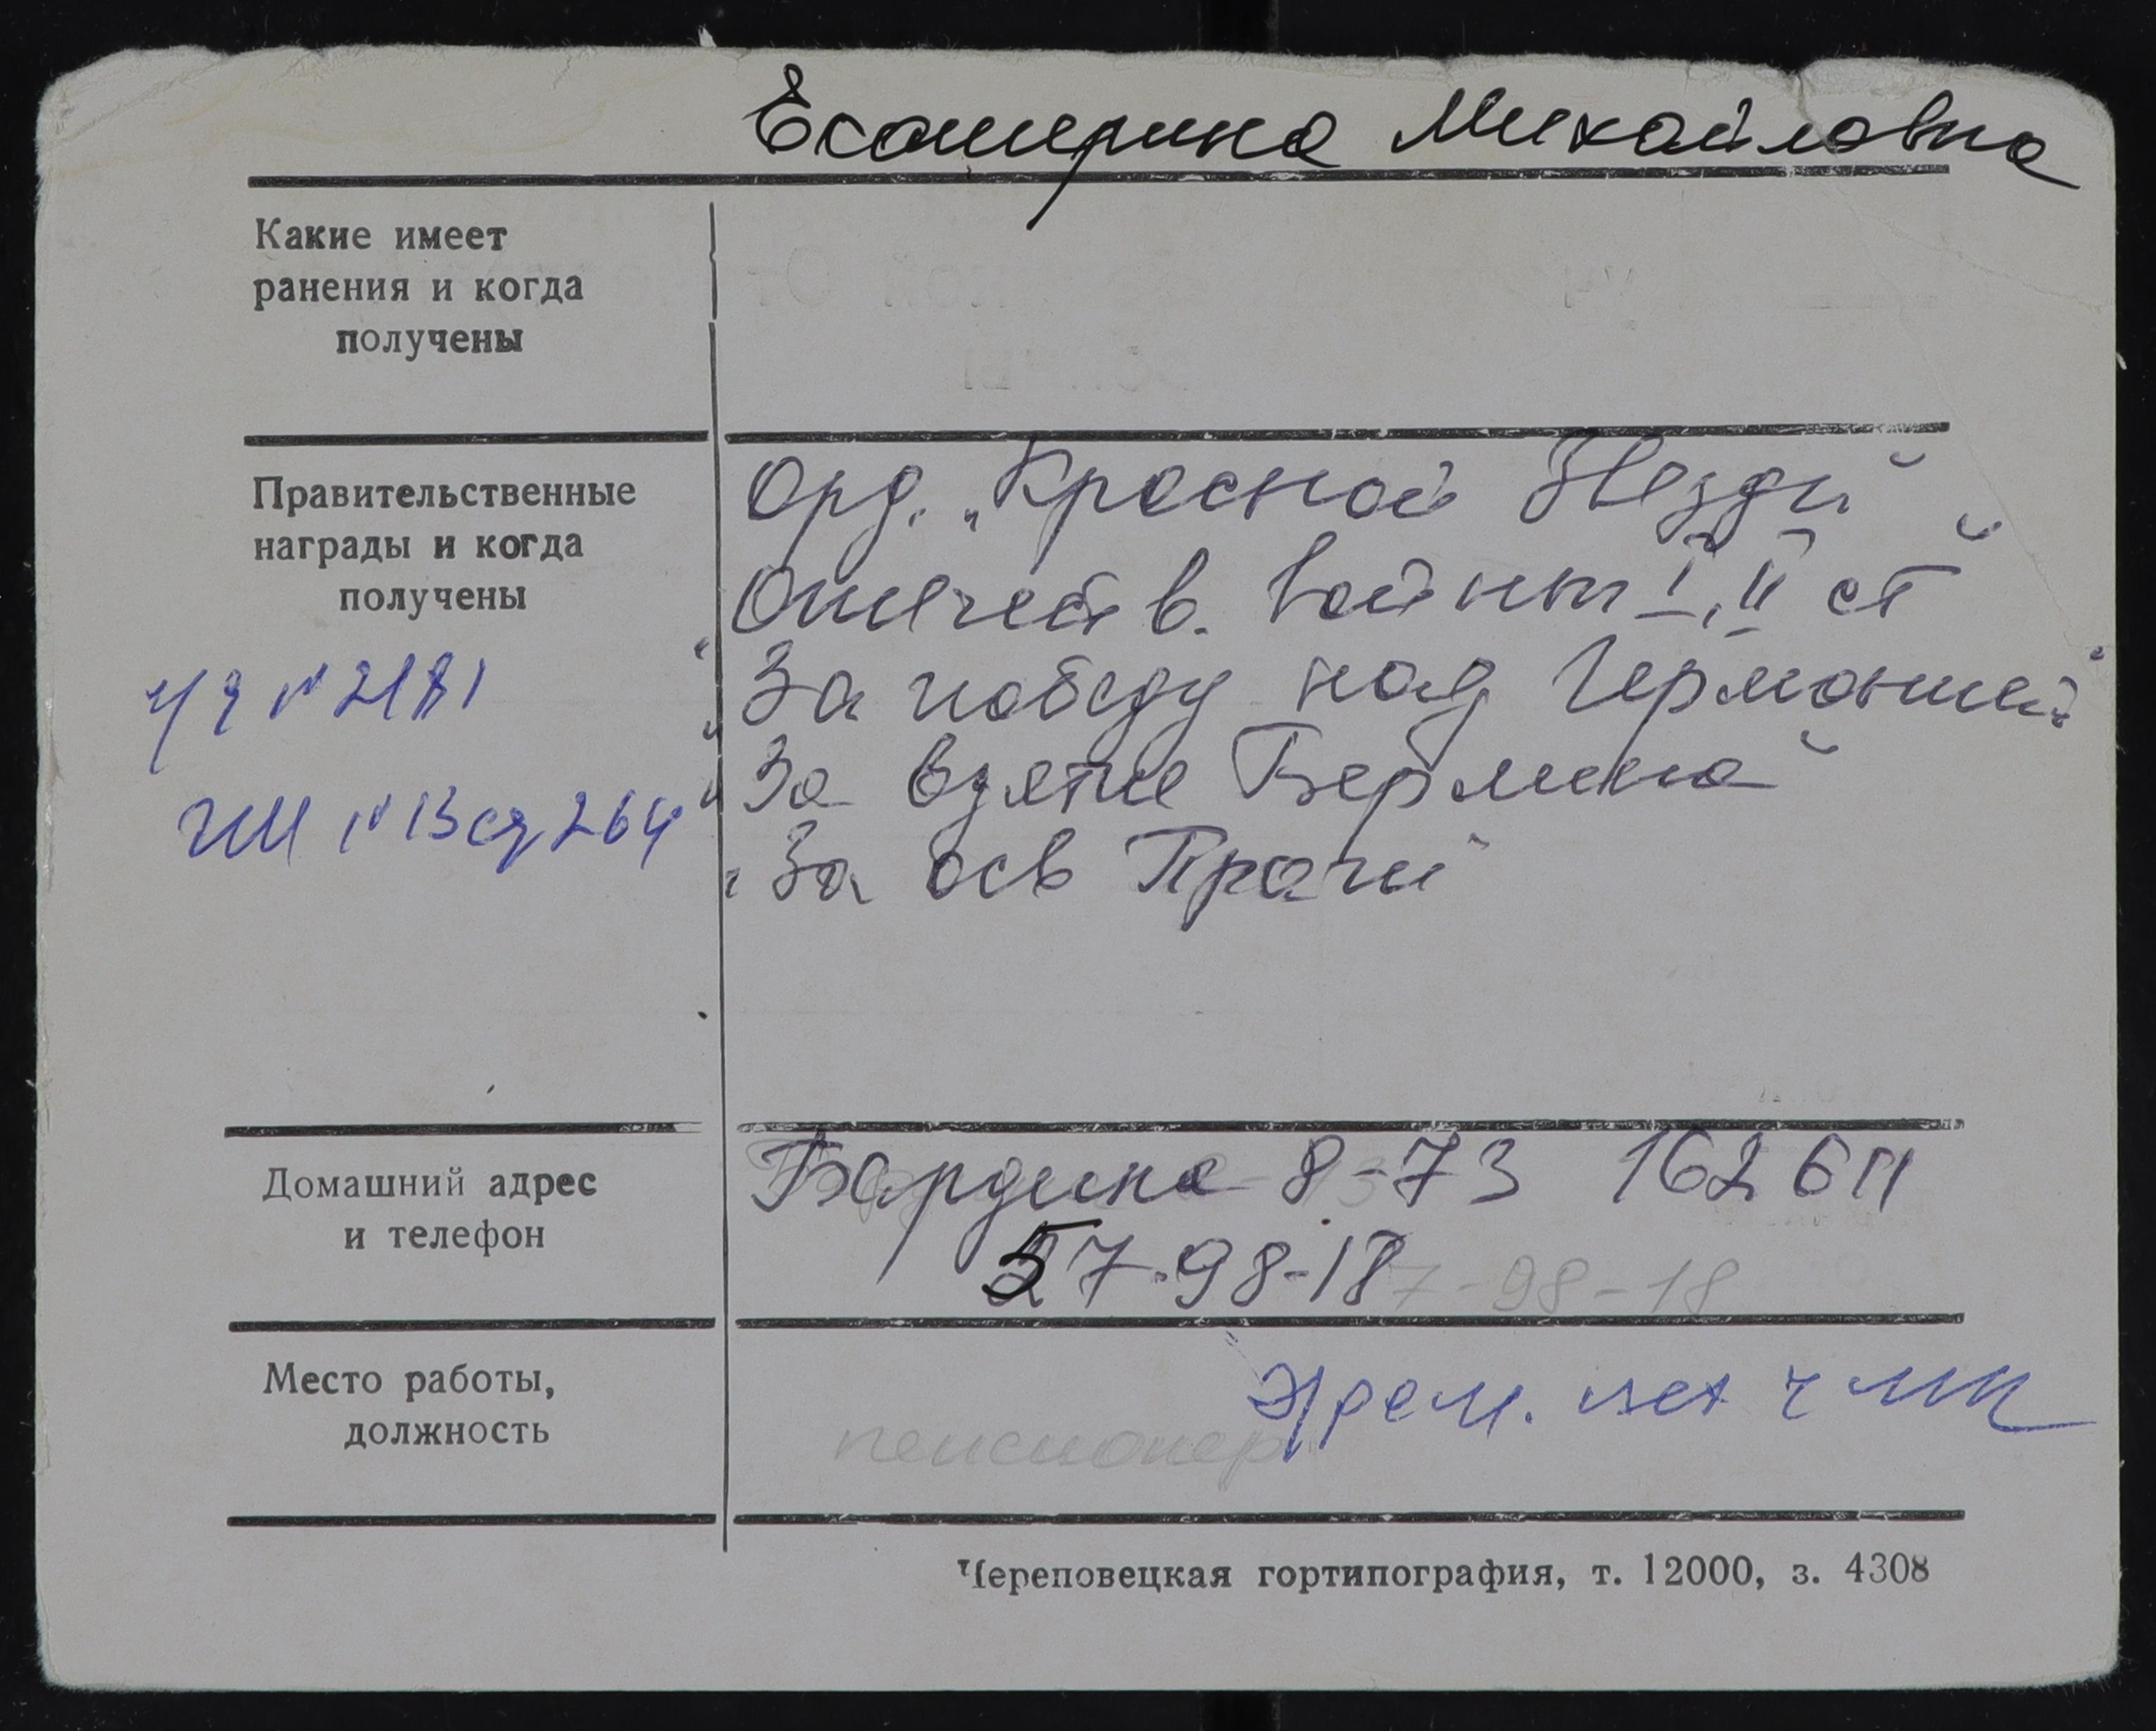 Екатерина Михайловна
Какие имеет
ранения и когда
получены
Правительственные
награды и когда
получены
Орд. „Красной Звезды"
Отечеств. войны I, II ст
"За победу над Германией"
"За взятие Берлина"
"За осв Праги"
у/д № 2181
Домашний адрес
и телефон
Бардина 8-73 162611
57-98-18 7-98-18
Место работы,
должность
рем. цех ЧМК
пенсионер
Череповецкая гортипография, т. 12000, з. 4308